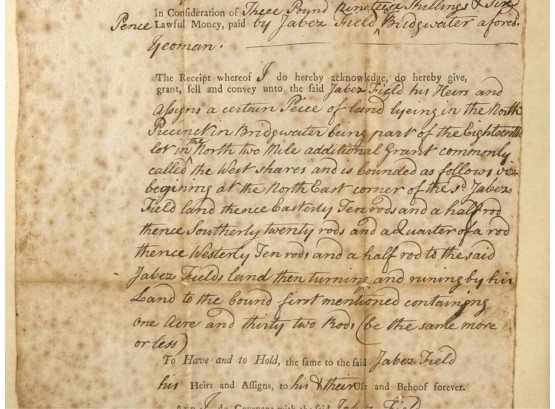 In Consideration of Three Pound Nineteen Shillings & Six
Pence Lawful Money, paid by Jabez Field ^ Bridgwater afores.
Yeoman.
The Receipt whereof I do hereby acknowledge, do hereby give,
grant, sell and convey unto the said Jabez Field his Heirs and
Assigns a certain Peice of land lyeing in the North
Precinct in Bridgwater being part of the Eighteenth
lot in the North two Mile additional Grant commonly
called the West shares and is bounded as follows viz
beginning at the North East corner of the sd. Jabez
Field land thence Easterly Ten rods and a half rod
thence Southerly twenty rods and a Quarter of a rod
thence Westerly Ten rods and a half rod to the said
Jabez Fields Land then turning and runing by his
Land to the bound first mentioned containing
one Acre and thirty two Rods (be the same more
or less)
To Have and to Hold, the same to the said Jabez Field
his Heirs and Assigns, to his & their Use and Behoof forever.
And I do Covenant with the said Jabez Field